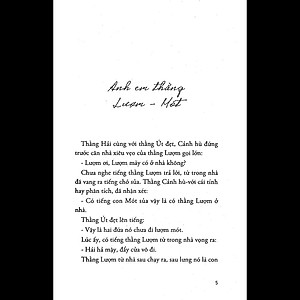 Anh em thằng
Lượm – Mót
Thằng Hải cùng với thằng Út đẹt, Cảnh hù đứng
trước căn nhà xiêu vẹo của thằng Lượm gọi lớn:
- Lượm ơi, Lượm mày có ở nhà không?
Chưa nghe tiếng thằng Lượm trả lời, từ trong nhà
đã vang ra tiếng chó sủa. Thằng Cảnh hù-với cái tính
hay phân tích, đã nhận xét:
- Có tiếng con Mót sủa vậy là có thằng Lượm ở
nhà.
Thằng Út đẹt lên tiếng:
- Vậy là hai đứa nó chưa đi lượm mót.
Lúc ấy, có tiếng thằng Lượm từ trong nhà vọng ra:
- Hải hả mậy, đẩy cửa vô đi.
Thằng Lượm từ nhà sau chạy ra, sau lưng nó là con
5